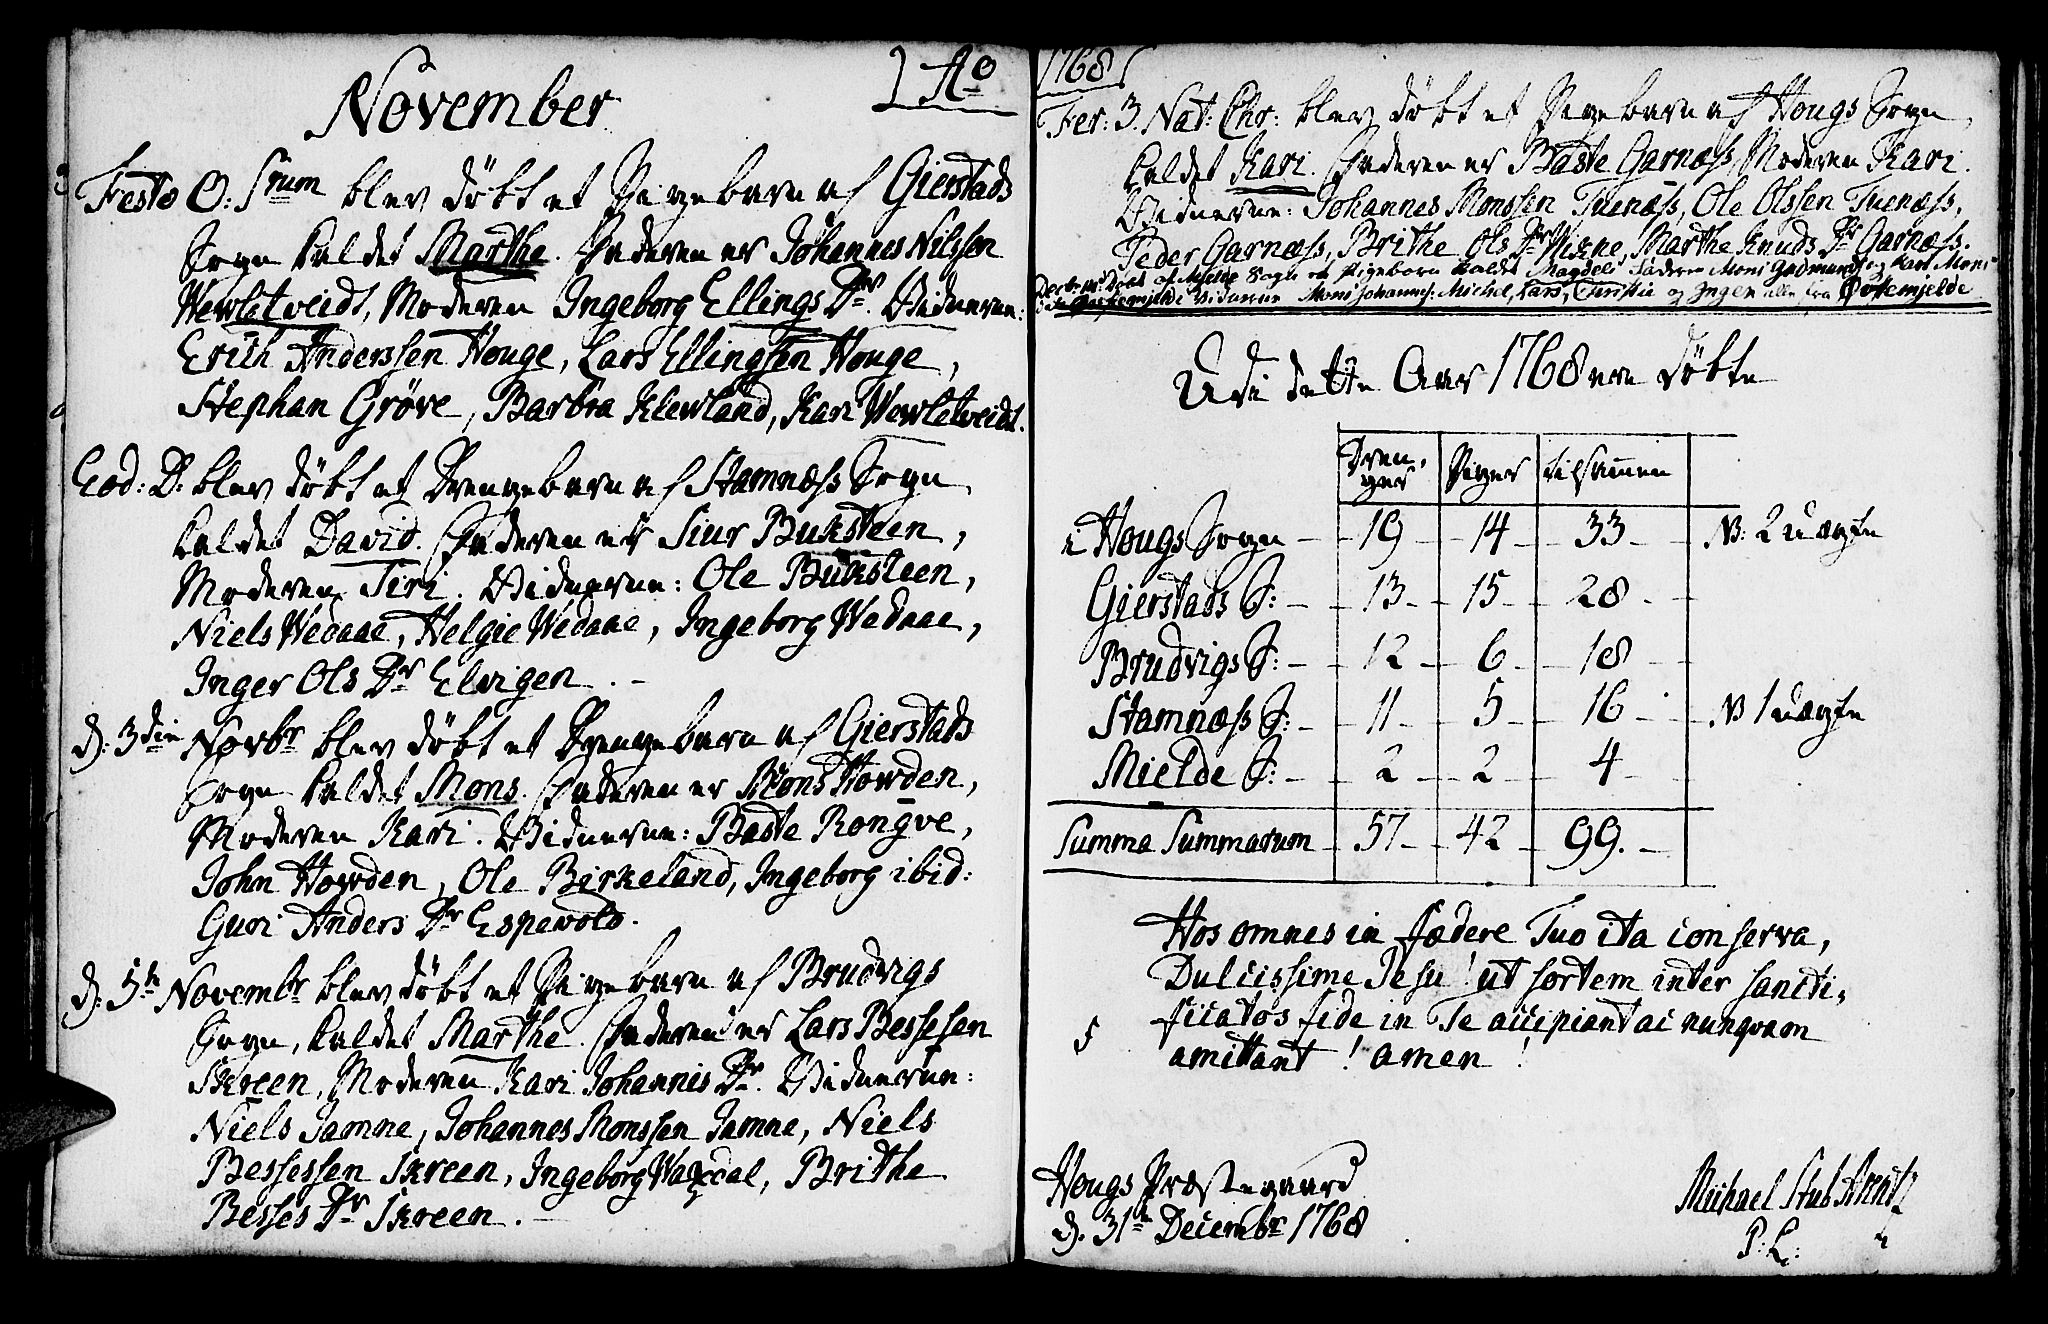 November
Ao
Festo O: Srum blev døbt et Pigebarn af Gierstads
Sogn kaldet Marthe. Faderen er Johannes Nilssen
Wewletveidt, Moderen Ingeborg Ellings Dr. Vidnerne:
Erich Anderssen Houge, Lars Ellingsen Houge,
Stephan Gröve, Barbra Klewland, Kari Wewletveidt.
Eod: D: blev døbt et Drengebarn af Stamnæss Sogn
kaldet David. Faderen er Siur Buksteen,
Moderen Siri. Vidnerne: Ole Buksteen,
Niels Wedaae, Helgie Wedaae, Ingeborg Wedaae,
Inger Ols Dr Elvigen.
d: 3die Novbr blev døbt et Drengebarn af Gierstads
Sogn kaldet Mons. Faderen er Mons Howden,
Moderen Kari. Vidnerne: Baste Rongve,
John Howden, Ole Birkeland, Ingeborg ibid:
Guri Anders Dr Espevold.
d: 5te Novembr blev døbt et Pigebarn af Brudvigs
Sogn, kaldet Marthe. Faderen er Lars Bessesen
Skreen, Moderen Kari Johannis Dr. Vidnerne:
Niels Jamne, Johannes Monssen Jamne, Niels
Bessessen Skreen, Ingeborg Waxdal, Brithe
Besses Dr Skreen.
1768
Fer: 3. Nat: Chr: blev døbt et Pigebarn af Hougs Sogn
kaldet Kari. Faderen er Baste Garnæss, Moderen Kari.
Vidnerne: Johannes Monssen Tuenæss, Ole Olssen Tuenæss,
Peder Garnæss, Brithe Ols Dr Wikne, Marthe Knuds Dr Garnæss.
af Mielde Sogn et Pigebarn kaldet Magdeli Faderen Mons Gudmunds og Kari Mons
Vidnerne Mons Johanns: Michel, Lars, Christie og Ingen alle fra Øvtemielde
Udi dette Aar 1768 ere døbte
Dren-
ger Piger tilsammen
i Hougs Sogn 19 14 33 NB: 2 uægte
Gierstads S: 13 15 28
Brudvigs S: 12 6 18
Stamnæss S: 11 5 16 NB 1 uægte
Mielde S: 2 2 4
Summa Summarum 57 42 99.
Hos omnes in fædere Tuo ita conserva,
Dulcissime Jesu! ut sortem inter sancti-
ficatos fide in Te accipiant ac nunqvam
amittant! amen!
Hougs Præstegaard
d. 31te Decembr 1768
Michael Stub Arentz
P: L: